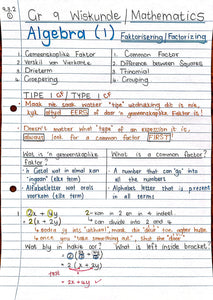 9.3.2
①
Gr 9 Wiskunde / Mathematics
Algebra (1) Faktorisering / Factorizing
1. Gemeenskaplike Faktor
2. Verskil van Vierkante
3. Drieterm
4. Groepering
1. Common Factor
2. Difference between Squares
3. Trinomial
4. Grouping
TIPE 1 GF / TYPE 1 CF
* Maak nie saak watter "tipe" uitdrukking dit is nie,
kyk altyd EERS of daar 'n gemeenskaplike faktor is!
* Doesn't matter what "type" of an expression it is,
always look for a common factor FIRST!
Wat is 'n gemeenskaplike faktor?
* 'n Getal wat in almal kan "ingaan" (elke term)
* Alfabetletter wat oral voorkom (elke term)
What is a common factor?
* A number that can "go" into all the numbers
* Alphabet letter that is present in all terms
2x + 4y
= 2(x + 2y)
2 kan in 2 en in 4 indeel
2 can divide into 2 and 4
"once you "take something out", shut the "door"
Wat bly in hakie oor?
What is left inside bracket?
= 2(x + 2y)
toets
= 2x + 4y ✓